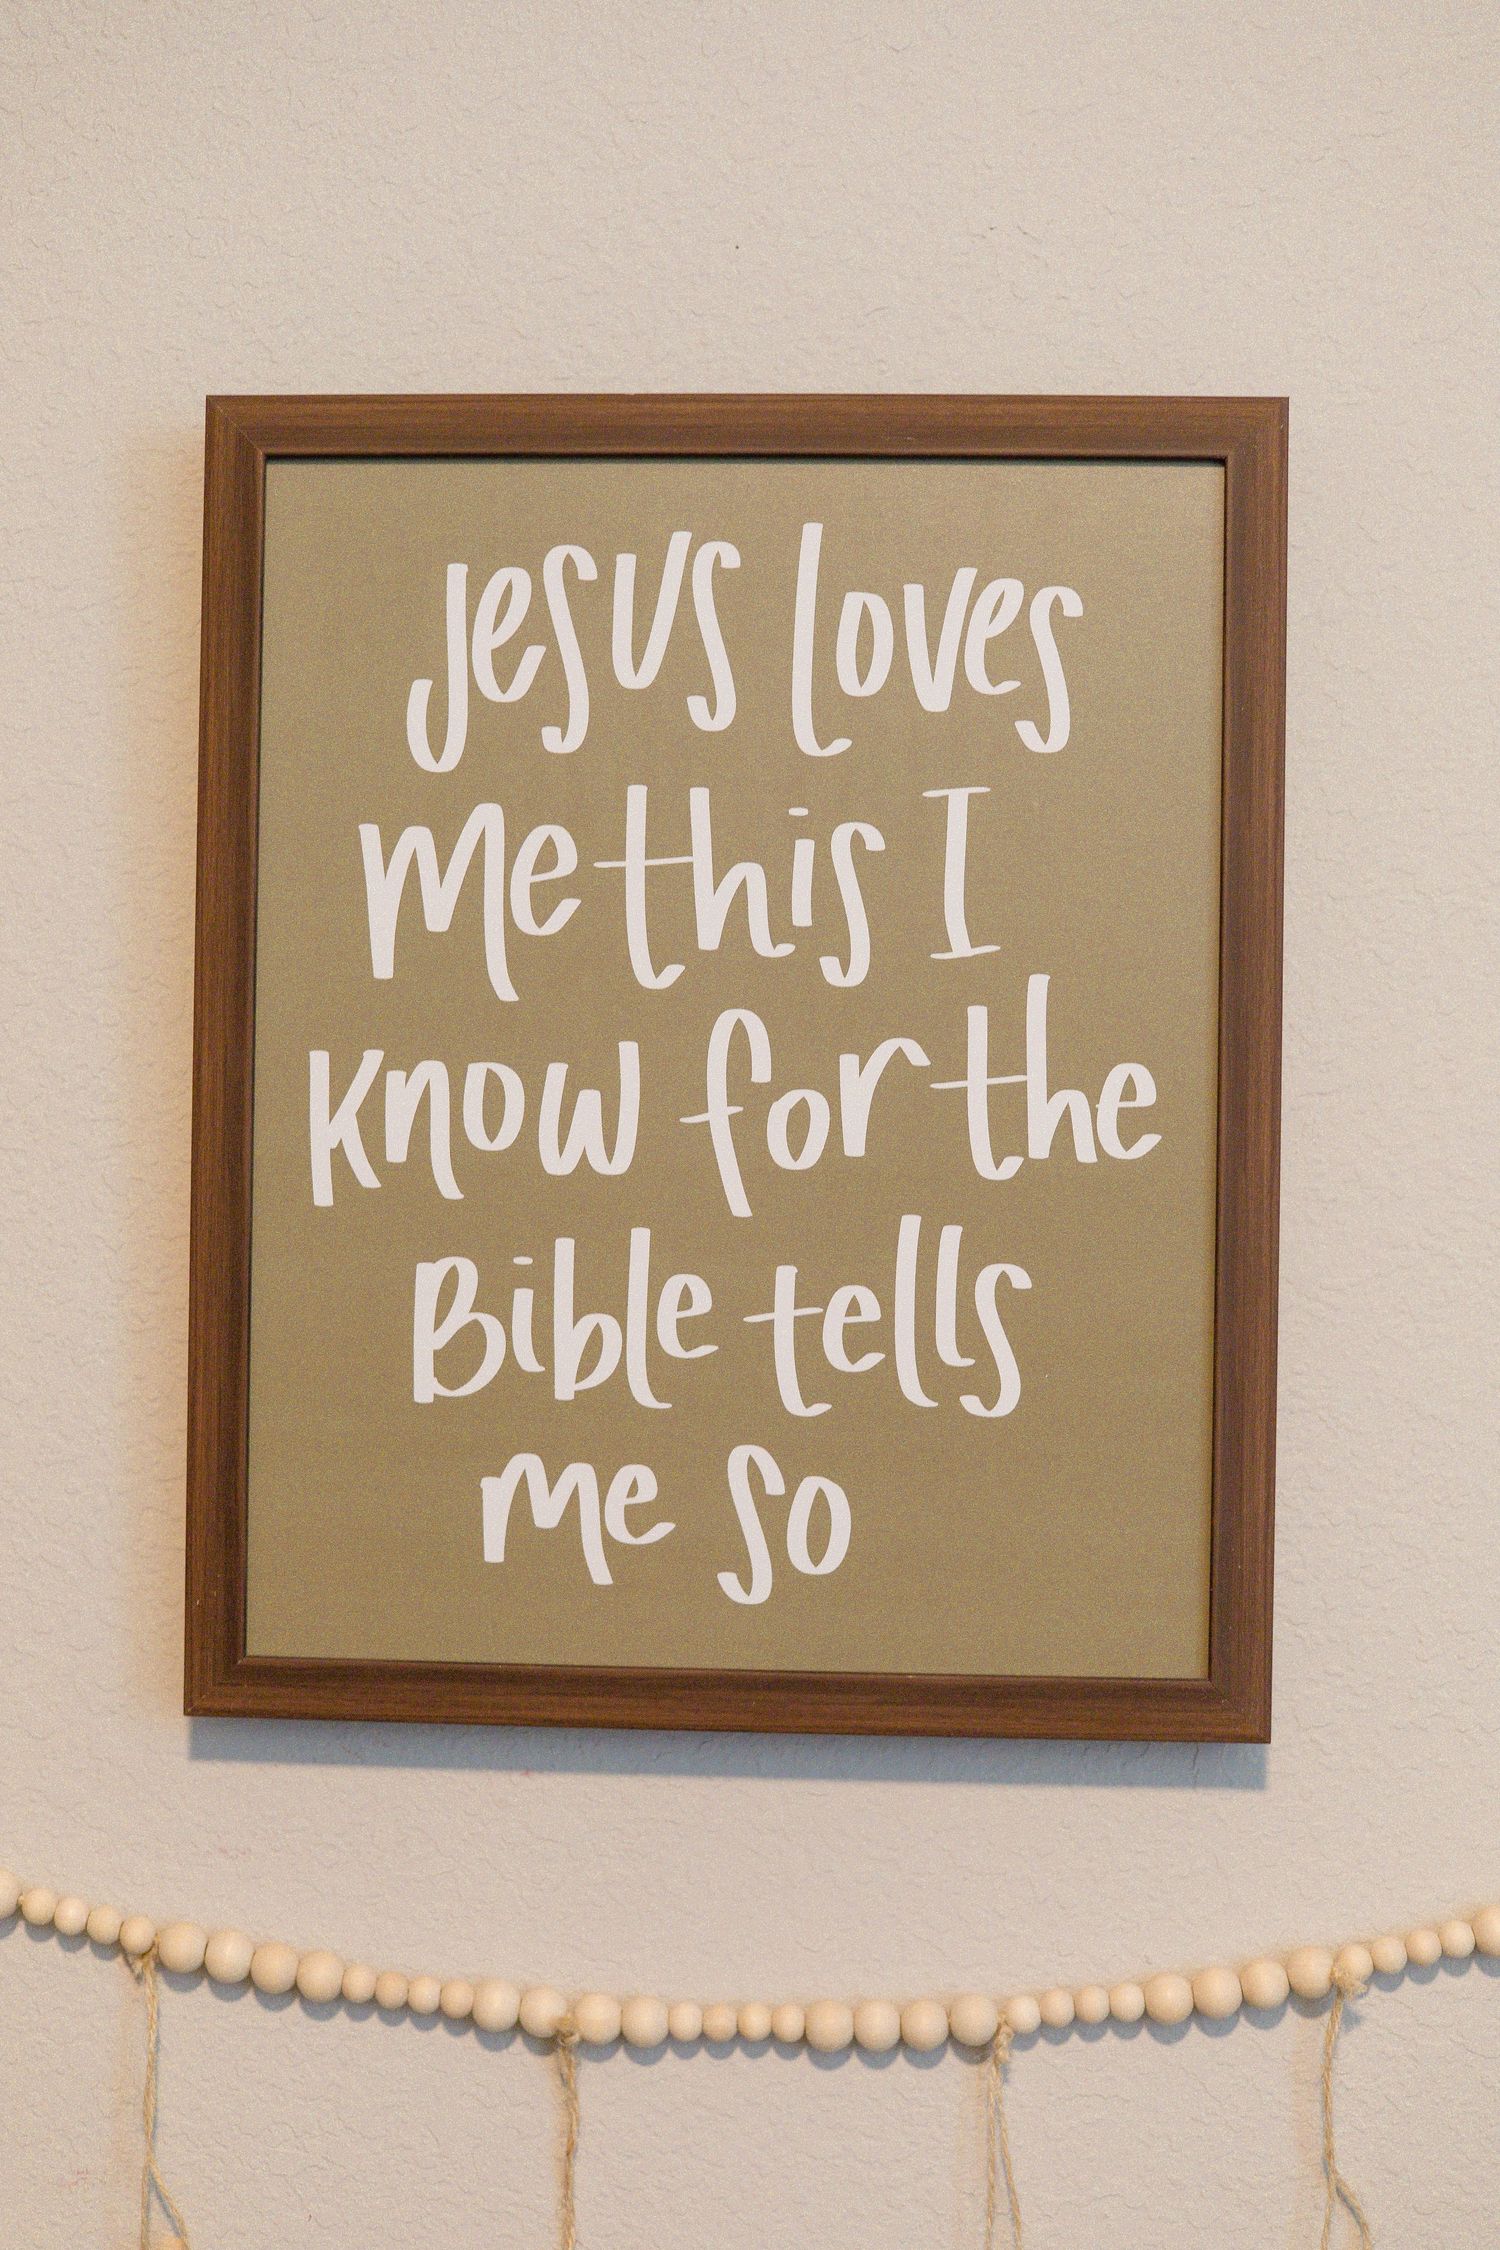 Jesus loves
me this I
know for the
Bible tells
me so